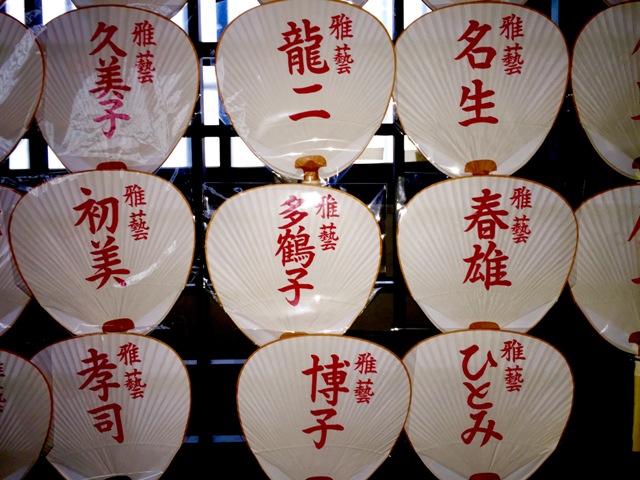 雅藝
久美子
雅藝
龍二
雅藝
名生
雅藝
初美
雅藝
多鶴子
雅藝
春雄
雅藝
孝司
雅藝
博子
雅藝
ひとみ